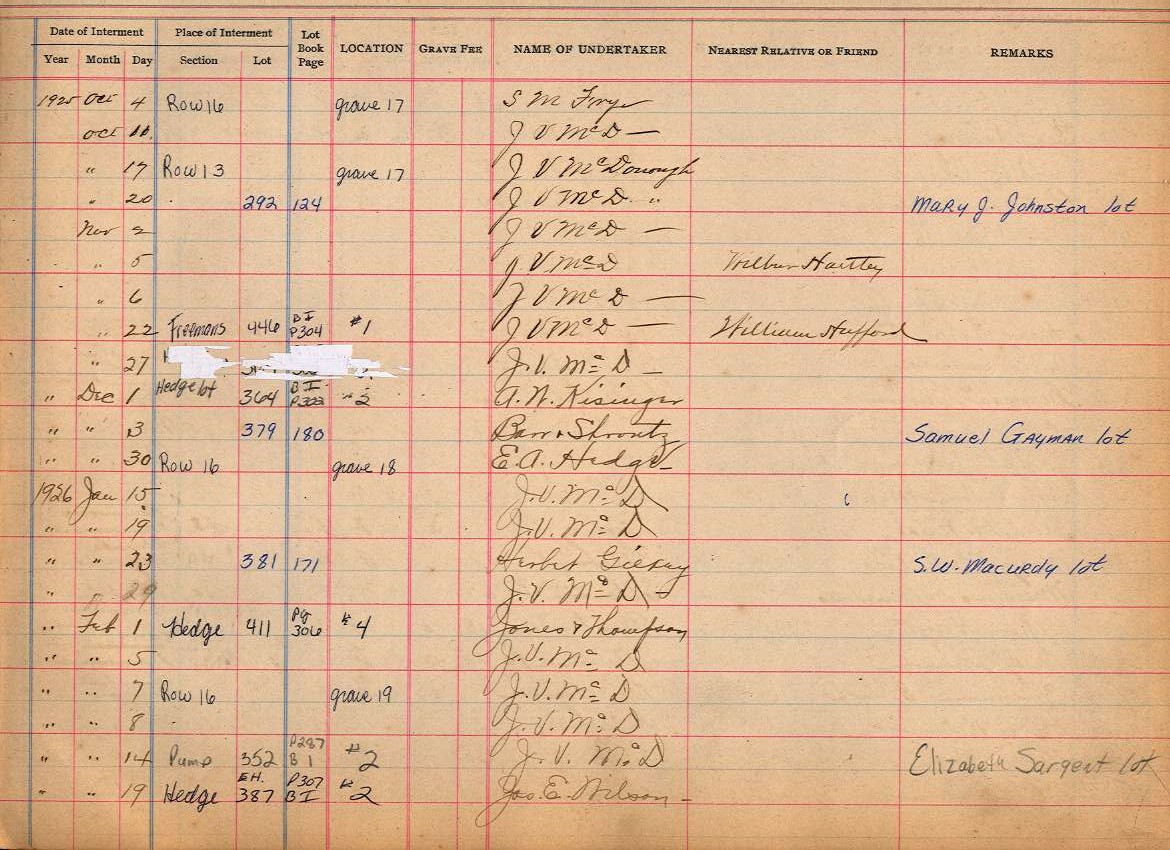 Date of Interment Place of Interment Lot Book Page LOCATION GRAVE FEE NAME OF UNDERTAKER NEAREST RELATIVE OR FRIEND REMARKS
Year Month Day Section Lot
1925 Oct 4 Row 16 grave 17 S M Frye
Oct 11. J V McD —
" 17 Row 13 grave 17 J V McDonough
" 20 . 292 124 J V McD " Mary J. Johnston lot
Nov 2 J V McD —
" 5 J V McD Wilbur Hartley
" 6 J V Mc D —
" 22 Freemans 446 B I P304 #1 J V McD — William Hufford
" 27 J. V. Mc D —
" Dec 1 Hedge lot 364 B I P303 #2 A. W. Kisinger
" " 3 379 180 Barr & Shrontz Samuel Gayman lot
" " 30 Row 16 grave 18 E. A. Hedge
1926 Jan 15 J. V. Mc D
" " 19 J. V. Mc D
" " 23 381 171 S. W. Macurdy lot
" " 29 J. V. Mc D -
" Feb 1 Hedge 411 Pg 306 #4 Jones & Thompson
" " 5 J. V. Mc D
" " 7 Row 16 grave 19 J. V. Mc D
" " 8 . J. V. Mc D
" " 14 Pump 352 P287 B 1 #2 J. V. Mc D Elizabeth Sargent lot
" " 19 Hedge E.H. 387 P307 B I #2 Jas. E. Wilson -